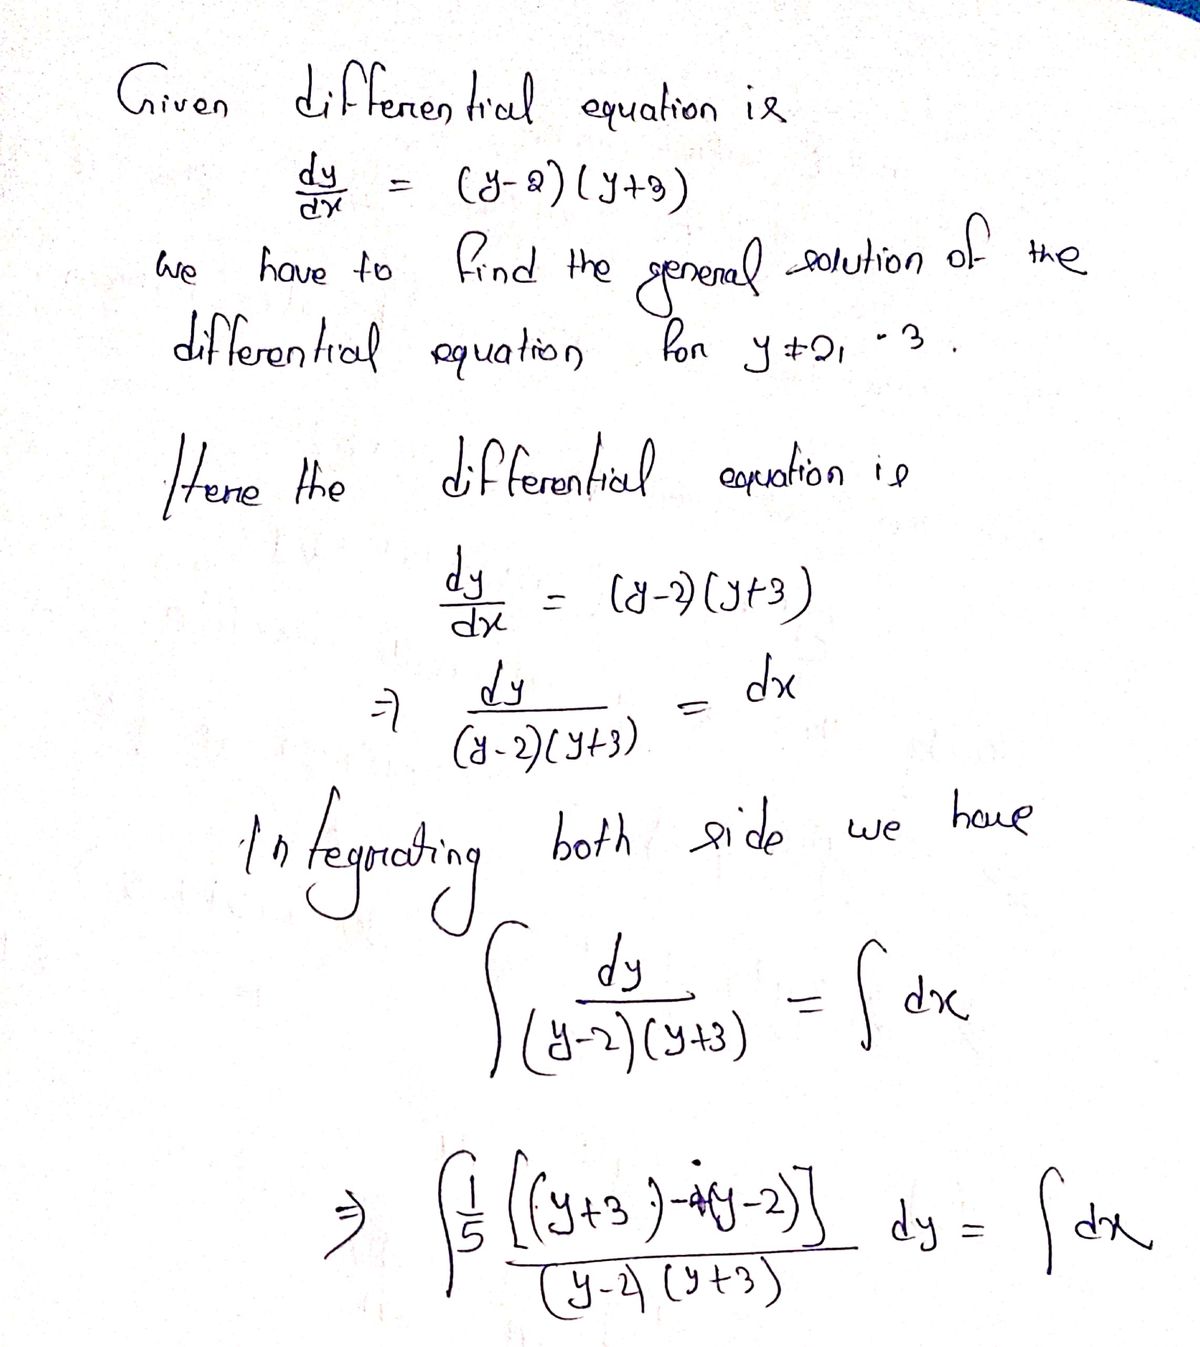 Given differential equation is
dy/dx = (y-2)(y+3)
we have to find the general solution of the
differential equation for y ≠ 2, -3.
Here the differential equation is
dy/dx = (y-2)(y+3)
⇒ dy/((y-2)(y+3)) = dx
Integrating both side we have
∫ dy/((y-2)(y+3)) = ∫ dx
⇒ ∫ 1/5 [(y+3)-(y-2)]/((y-2)(y+3)) dy = ∫ dx